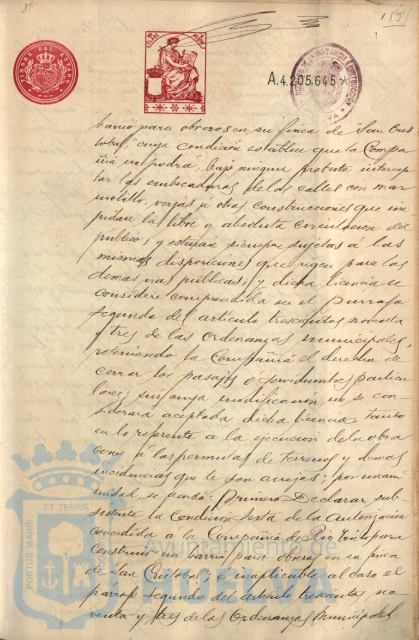 A.4.205.645*
barrio para obreros en su finca de "San Cris
tobal" cuya condición establece que la Compa
ñía no podrá, bajo ningun pretexto intercep
tar las embocaduras de las calles con mar
molillo, verjas ú otras construcciones que im
pidan la libre y absoluta circulacion del
público, y estarán siempre sujetas á las
mismas disposiciones que rigen para las
demas vias públicas, y dicha licencia se
considere comprendida en el parrafo
segundo del artículo trescientos noventa
y tres de las Ordenanzas municipales,
reteniendo la Compañía el derecho de
cerrar los pasajes o servidumbres particu
lares; sin cuya modificacion no se con
siderará aceptada dicha licencia tanto
en lo referente a la ejecucion de la obra
como á las permutas de terrenos y demas
incidencias que le son anejas; por unani
midad se acordó: Primero Declarar sub
sistente la Condicion Sexta de la Autorizacion
concedida a la Compañía de Rio Tinto para
construir un barrio para obreros en su finca
de San Cristobal, é inaplicable al caso el
parrafo segundo del artículo trescientos no
venta y tres de las Ordenanzas Municipales
PORTUS MARIS ET TERRÆ
Ayuntamiento de